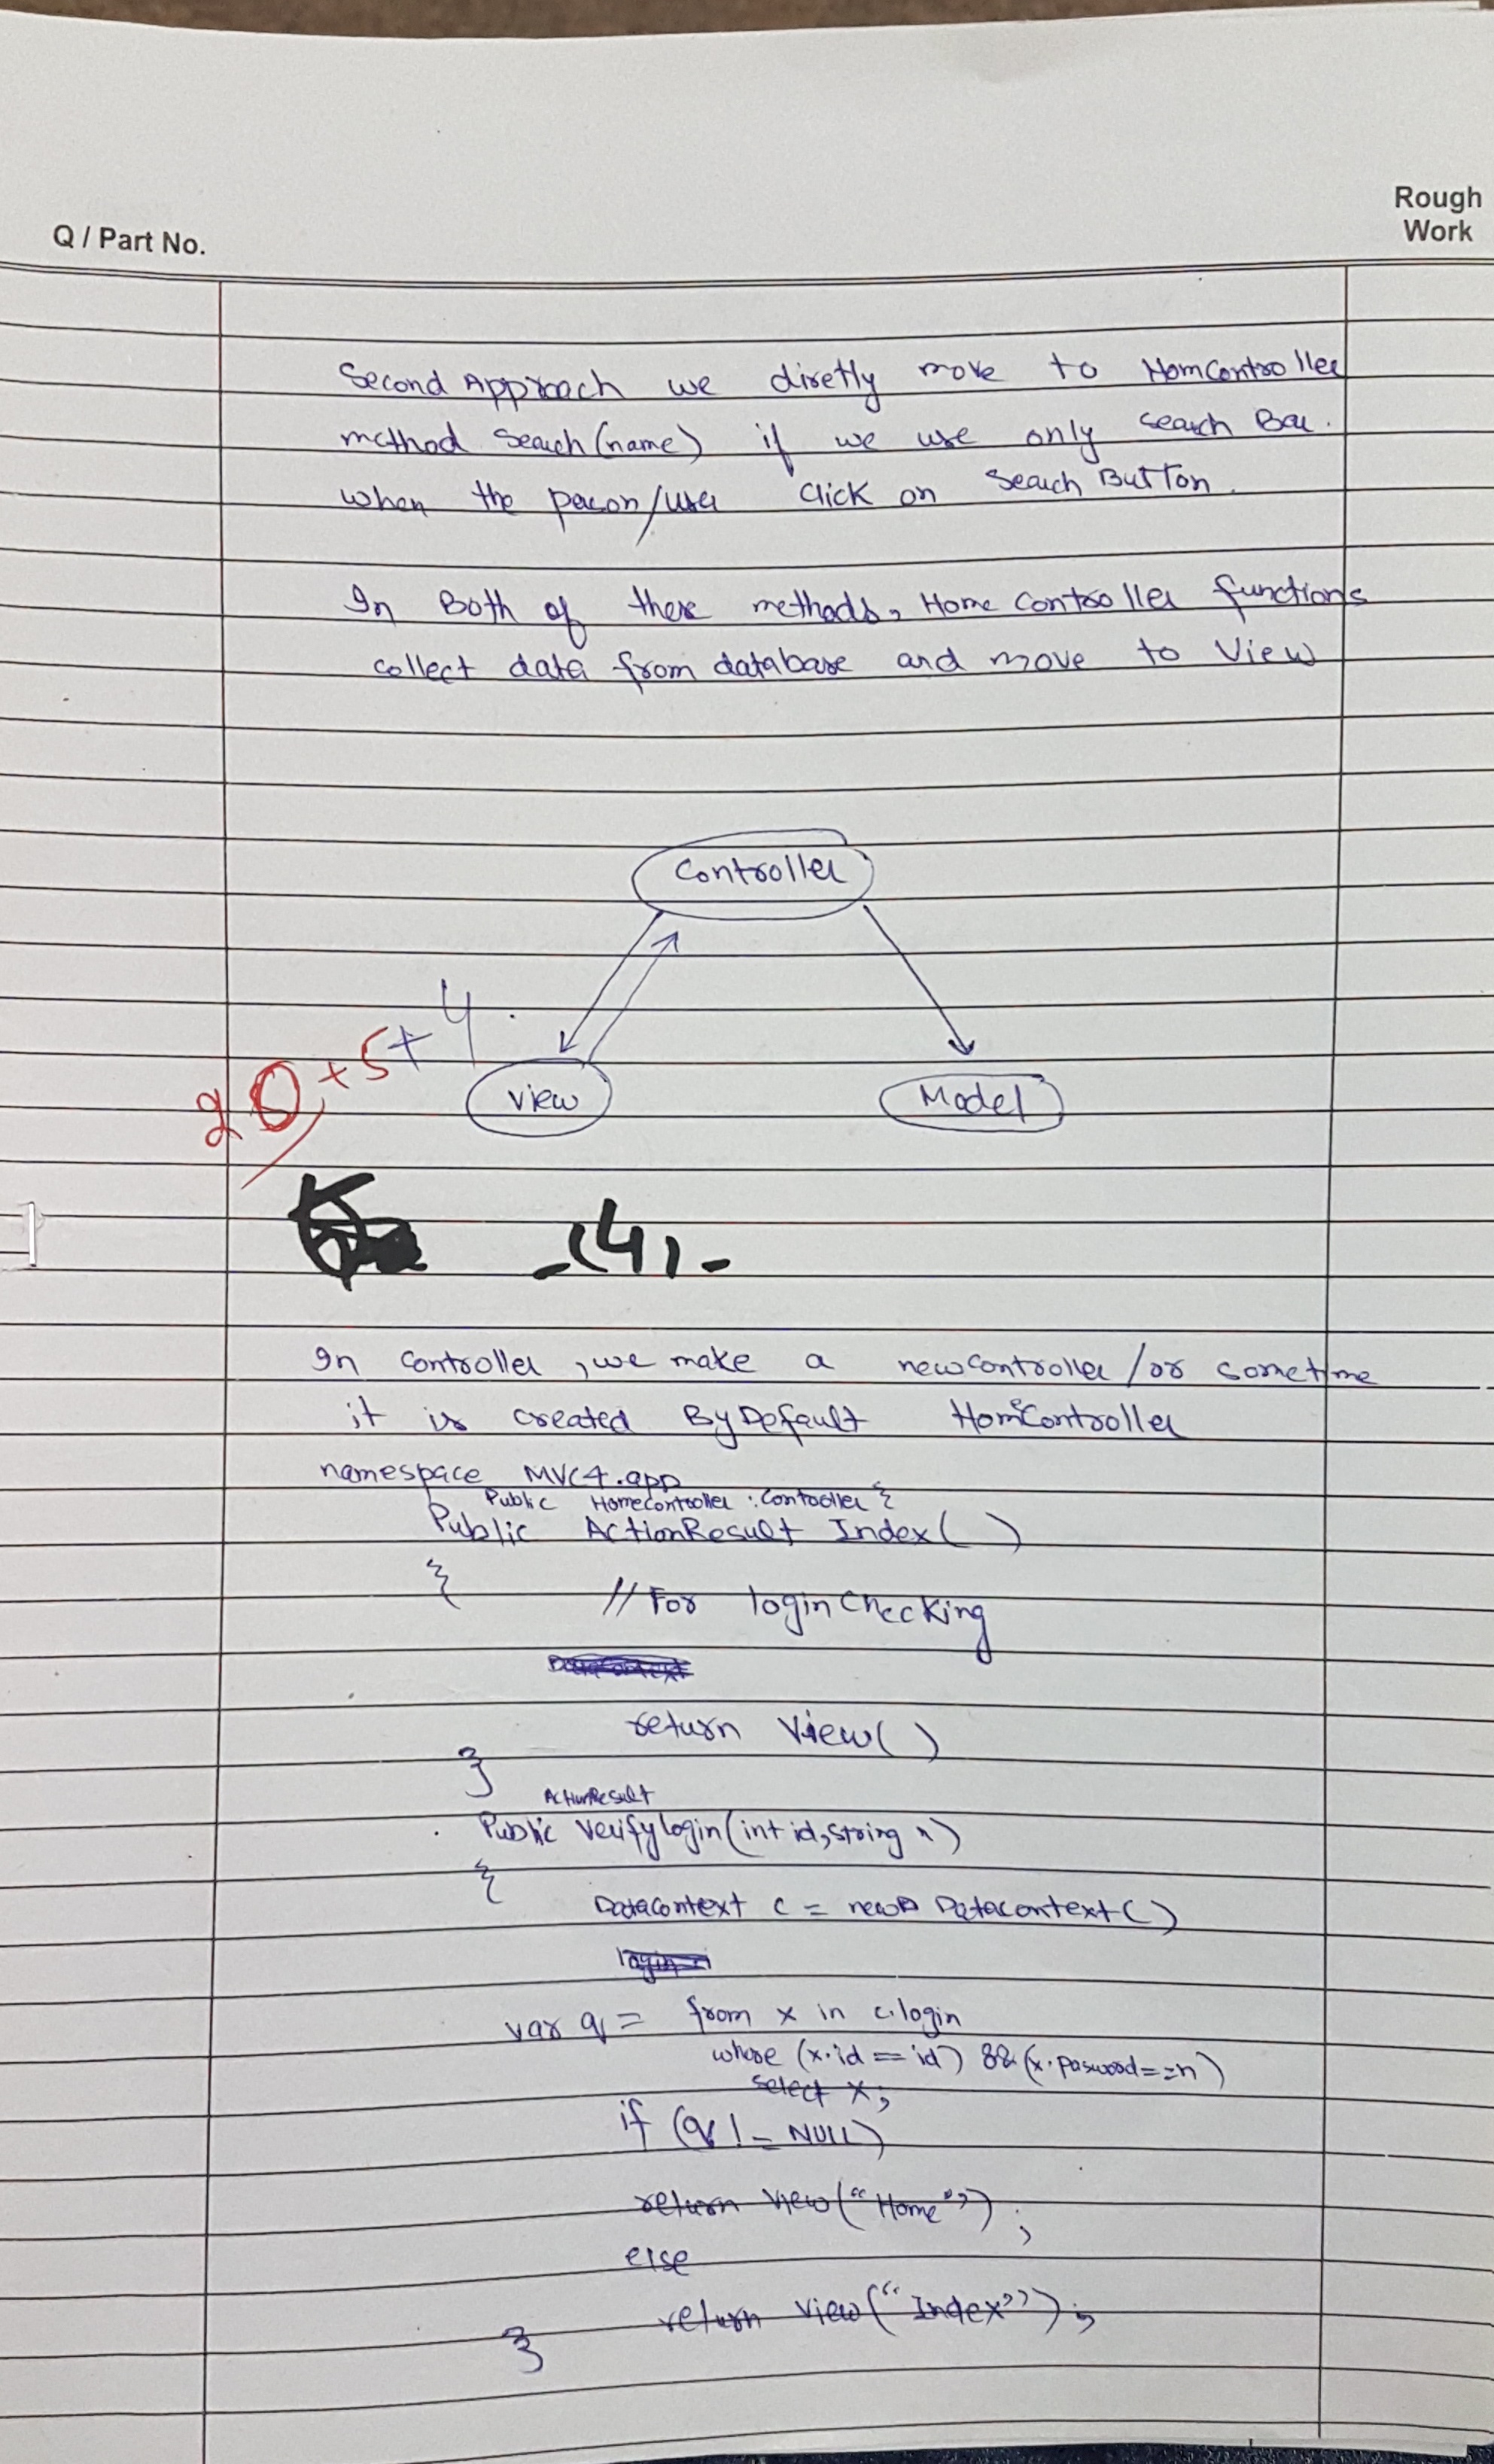 Q / Part No.
Rough
Work
Second Approach we diretly move to HomController
method Search (name) if we use only search Bar.
when the pacon/user click on Search Button.
In Both of these methods, Home Controller functions
collect data from database and move to View
Controller
View
Model
20 + 5 + 4
-(4)-
In Controller, we make a new controller /or sometime
it is created By Default HomeController
namespace MVC4.app
Public HomeController : Controller {
Public ActionResult Index( )
{ // For login checking
return View( )
}
ActionResult
Public Verifylogin(int id, string n)
{
Datacontext c = new Datacontext( )
var q = from x in c.login
where (x.id == id) && (x.password==n)
select x;
if (q != NULL)
return View("Home");
else
return View("Index");
}